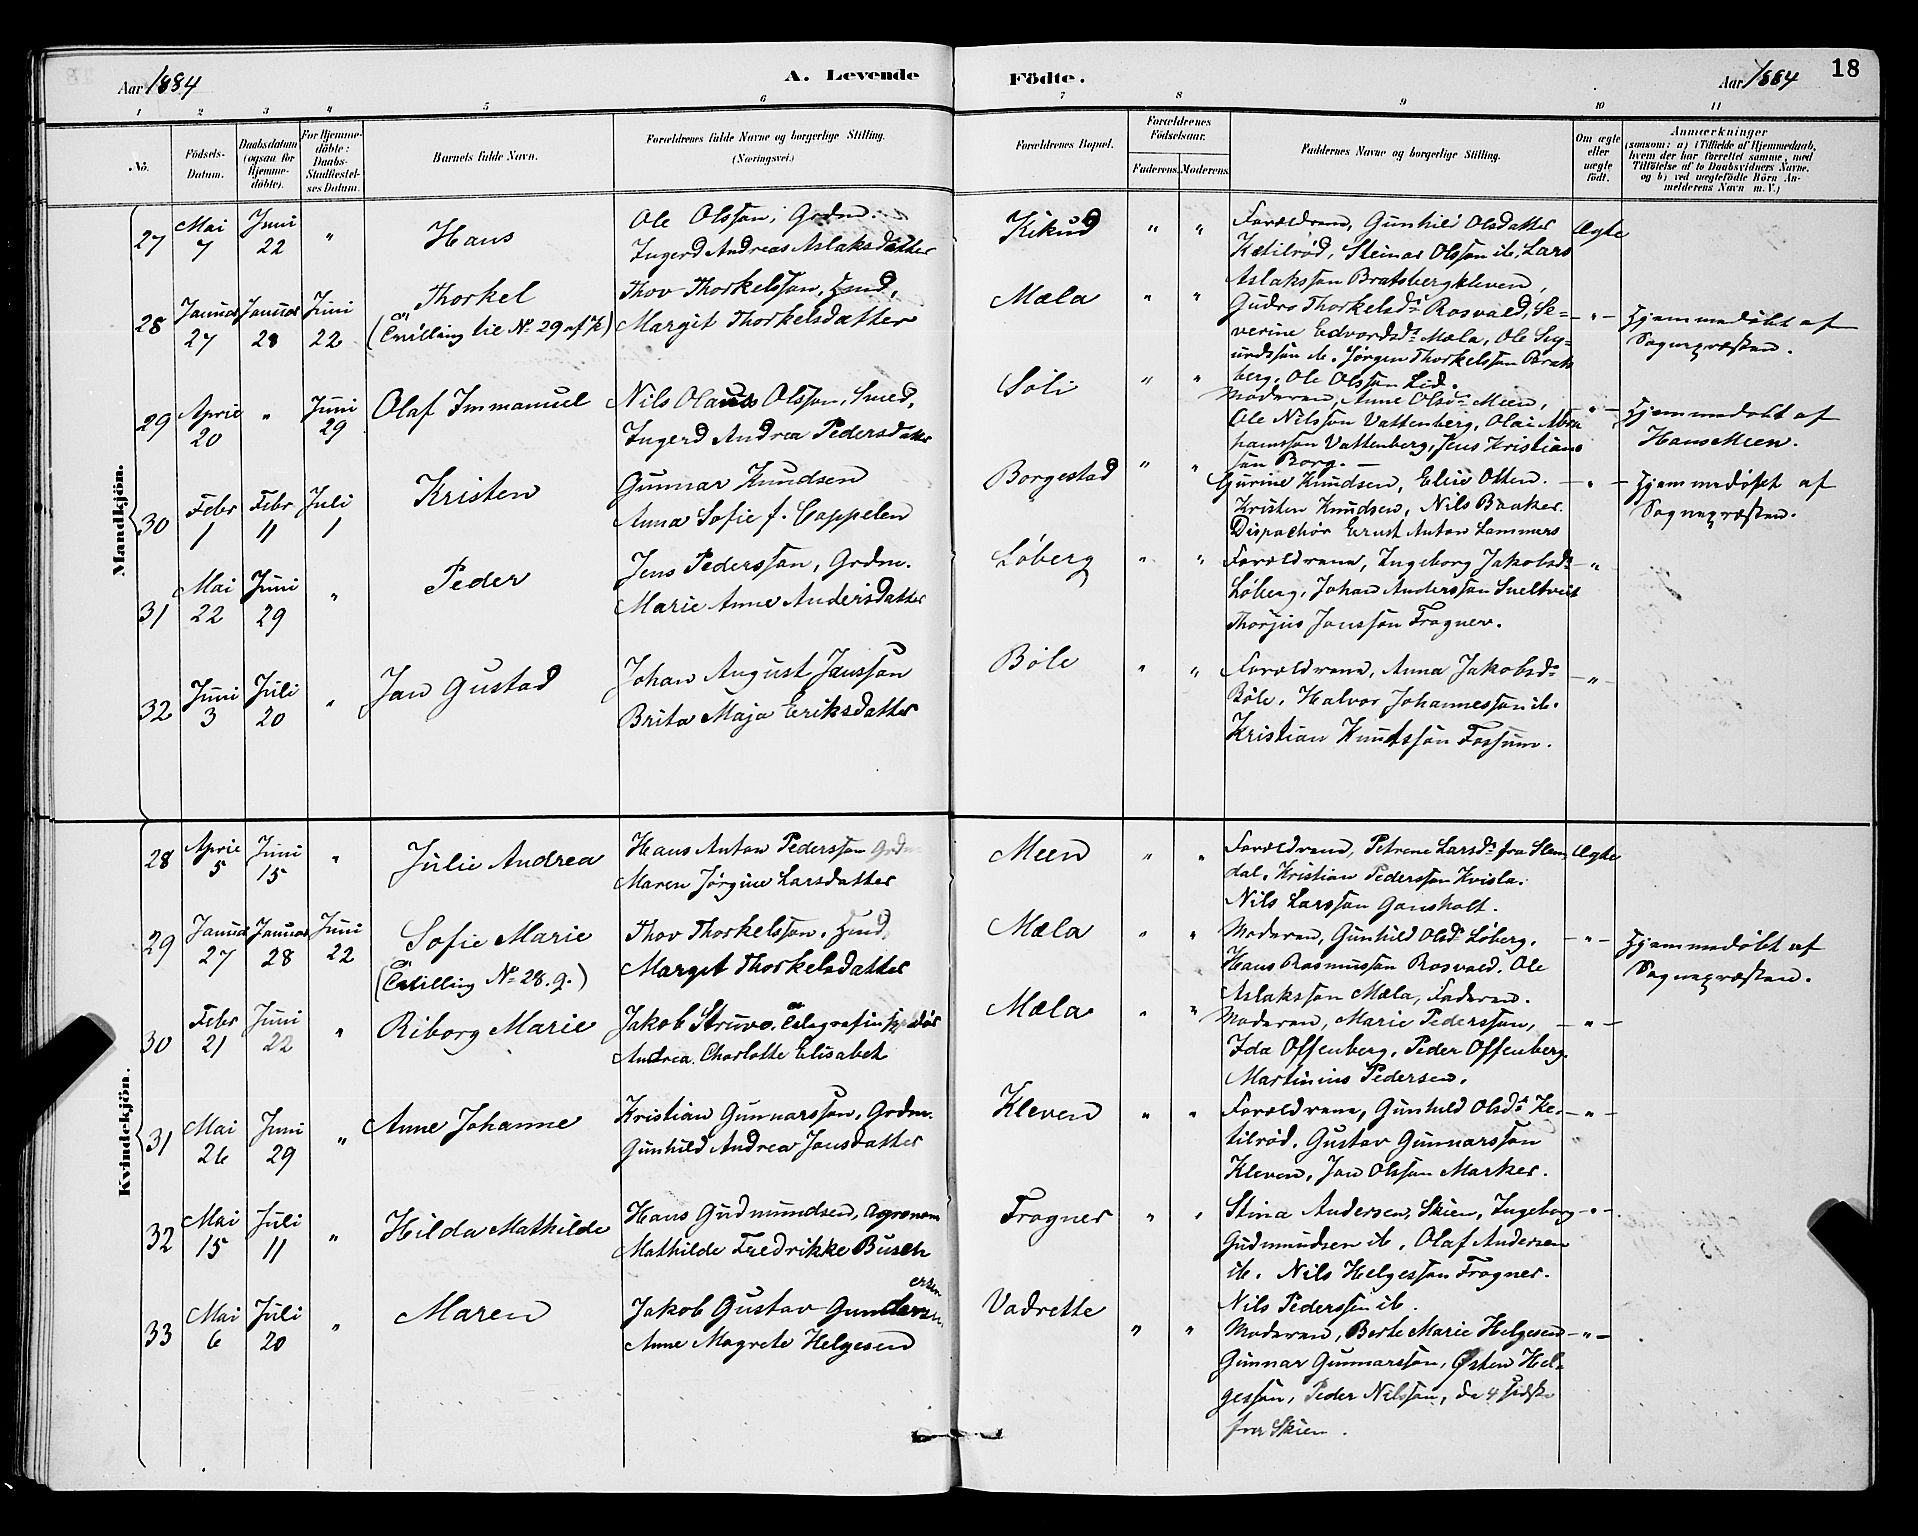 Aar 1884
A. Levende
Födte.
Aar 1884
18
1 2 3 4 5 6 7 8 9 10 11
No.
Födsels-
Datum.
Daabsdatum
(ogsaa for
Hjemme-
döbte).
For Hjemme-
döbte:
Daabs-
Stadfæstel-
ses Datum.
Barnets fulde Navn.
Forældrenes fulde Navne og borgerlige Stilling.
(Næringsvei.)
Forældrenes Bopæl.
Forældrenes
Födselsaar.
Faderens.
Moderens.
Faddernes Navne og borgerlige Stilling.
Om ægte
eller
uægte
födt.
Anmærkninger
(saasom: a) i Tilfælde af Hjemmedaab,
hvem der har forrettet samme, med
Tilföielse af to Daabsvidners Navne.
og b) ved uægtefödte Börn An-
melderens Navn m. V.)
Mandkjön.
27
Mai
7
Juni
22
"
Hans
Ole Olsson, Grdm.
Ingerd Andreas Aslaksdatter
Kikud
" "
Forældrene, Gunhild Olsdatter
Ketilrød, Steinar Olsson ib, Lars
Aslaksson Bratsbergkleven,
Ægte
28
Januar
27
Januar
28
Juni
22
Thorkel
(Tvilling til No 29 af K)
Thov Thorkelsson, Hmd,
Margit Thorkelsdatter
Mæla
" "
Gudro Thorkelsdr Rosvald, Se-
verine Edvardsdr Mæla, Ole Sig-
urdsson ib. Jørgen Thorkelsson Brats-
berg, Ole Olsson Lid.
-"-
Hjemmedøbt af
Sognepræsten.
29
April
20
"
Juni
29
Olaf Immanuel
Nils Olaus Olsson, Smed,
Ingerd Andrea Pedersdatter
Søli
" "
Moderen, Anne Olsdr Meen,
Ole Nilsson Vattenberg, Olai Abra-
hamsson Vattenberg, Jens Kristian-
son Borg. —
"-
Hjemmedøbt af
Hans Meen.
30
Febr
1
Febr
11
Juli
1
Kristen
Gunnar Knudsen
Anna Sofie f. Cappelen
Borgestad
" "
Gurine Knudsen, Elise Otten.
Kristen Knudsen, Nils Baaker.
Dispachør Ernst Anton Lammers
-"-
Hjemmedøbt af
Sognepræsten.
31
Mai
22
Juni
29
"
Peder
Jens Pedersson, Grdm.
Marie Anne Andersdatter
Løberg
" "
Forældrene, Ingeborg Jakobsdr
Løberg, Johan Andersson Sneltveit
Thorjus Jonsson Frogner.
-"-
32
Juni
3
Juli
20
"
Jan Gustad
Johan August Jansson
Brita Maja Eriksdatter
Bøle
" "
Forældrene, Anna Jakobsdr
Bøle, Halvor Johannesson ib.
Kristian Knutsson Fossum.
-"-
Kvindekjön.
28
April
5
Juni
15
"
Julie Andrea
Hans Anton Pedersson Grdm
Maren Jørgine Larsdatter
Meen
" "
Forældrene, Petrene Larsdr fra Slem-
dal, Kristian Pedersson Kvisla.
Nils Larsson Gansholt.
Ægte
29
Januar
27
Januar
28
Juni
22
Sofie Marie
(Tvilling No 28. g.)
Thov Thorkelsson, Hmd,
Margit Thorkelsdatter
Mæla
" "
Moderen, Gunhild Olsdr Løberg.
Hans Rasmusson Rosvald. Ole
Aslaksson Mæla, Faderen.
-"-
Hjemmedøbt af
Sognepræsten.
30
Febr
21
Juni
22
"
Riborg Marie
Jakob Struve,
Andrea Charlotte Elisabet
Mæla
" "
Moderen, Marie Pedersson,
Ida Offenberg, Peder Offenberg.
Martinius Pedersen.
-"-
31
Mai
26
Juni
29
"
Anne Johanne
Kristian Gunnarsson, Grdm.
Gunhild Andrea Jonsdatter
Kleven
" "
Forældrene, Gunhild Olsdr Ke-
tilrød. Gustav Gunnarsson
Kleven, Jan Olsson Marker.
-"-
32
Mai
15
Juli
11
"
Hilda Mathilde
Hans Gudmundsen, Agronom
Mathilde Fredrikke Busch
Frogner
" "
Stina Andersen, Skien, Ingeborg
Gudmundsen ib, Olaf Andersen
ib. Nils Helgesson Frogner.
Nils Pedersson ib.
-"-
33
Mai
6
Juli
20
"
Maren
Jakob Gustav Gundersen
Anne Magrete Helgesen
Vadrette
" "
Moderen, Berte Marie Helgesen
Gunnar Gunnarsson, Østen Hel-
gesson, Peder Nilsson, de 4 sidste
fra Skien.
-"-